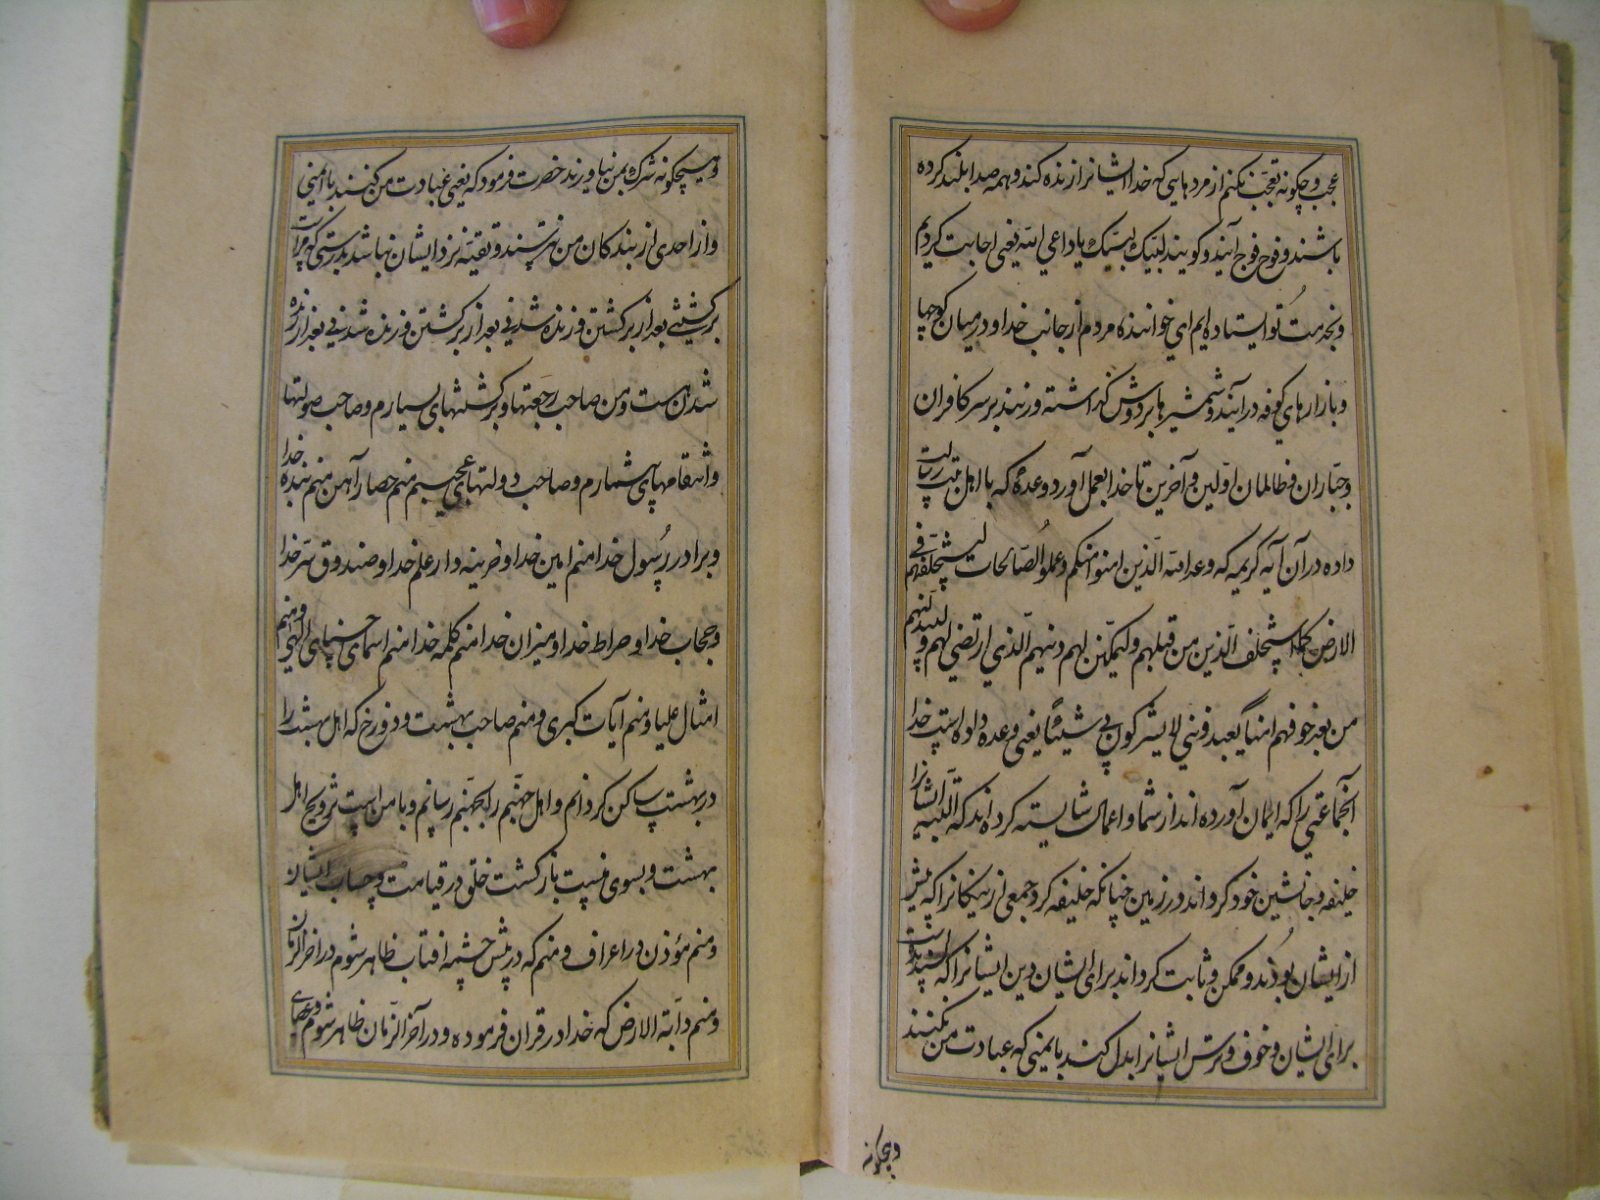 عجب و چکونه تعجب نکنم از مردهایی که خدا ایشانرا زنده کند و همه صدا بلند کرده
باشند و فوج فوج آیند و کویند لبیک لبیک یا داعی الله یعنی اجابت کردیم
و بخدمت تو ایستاده ایم ای خواننده مردم از جانب خدا و در میان کوچها
و بازارهای کوفه درآیند و شمشیرها بر دوش کذاشته و زنند بر سر کافران
و جباران و ظالمان اولین و آخرین تا خدا بعمل آورد وعدهٔ که با اهل بیت رسالت
داده در آن آیه کریمه که وعد الله الذین امنوا منکم و عملو الصالحات لیستخلفنهم فی
الارض کما استخلف الذین من قبلهم و لیمکنن لهم دینهم الذی ارتضی لهم و لیبدلنهم
من بعد خوفهم امنا یعبدوننی لا یشرکون بی شیئا یعنی وعده داده است خدا
آنجماعتی را که ایمان آورده اند از شما و اعمال شایسته کرده اند که البته ایشانرا
خلیفه و جانشین خود کرداند در زمین چنانکه خلیفه کرد جمعی از نیکانرا که پیش
از ایشان بودند و ممکن و ثابت کرداند برای ایشان دین ایشانرا که پسندیده است
برای ایشان و خوف و ترس ایشانرا بدل کند بایمنی که عبادت من بکنند
و هیچکونه
و هیچکونه شرک بمن نیاورند حضرت فرمود که یعنی عبادت من کنند با ایمنی
و از احدی از بندکان من نترسند و تقیه نزد ایشان نباشد بدرستی که مراست
برکشتنی بعد از برکشتن و زنده شدنی بعد از برکشتن و زنده شدنی بعد از زنده
شدن هست و من صاحب رجعتها و برکشتنهای بسیارم و صاحب صولتها
و انتقامهای بیشمارم و صاحب دولتهای عجیبم منم حصار آهن منم بنده خدا
و برادر رسول خدا منم امین خدا و خزینه دار علم خدا و صندوق سر خدا
و حجاب خدا و صراط خدا و میزان خدا منم کلمه خدا منم اسمای حسنای الهی و منم
امثال علیا و منم آیات کبری و منم صاحب بهشت و دوزخ که اهل بهشت را
در بهشت ساکن کردانم و اهل جهنم را بجهنم رسانم و با من است تزویج اهل
بهشت و بسوی منست بازکشت خلق در قیامت و حساب ایشان
و منم مؤذن در اعراف و منم که در پیش چشمه افتاب ظاهر شوم در اخر الزمان
و منم دابة الارض که خدا در قران فرموده و در آخر الزمان ظاهر شوم و عصای